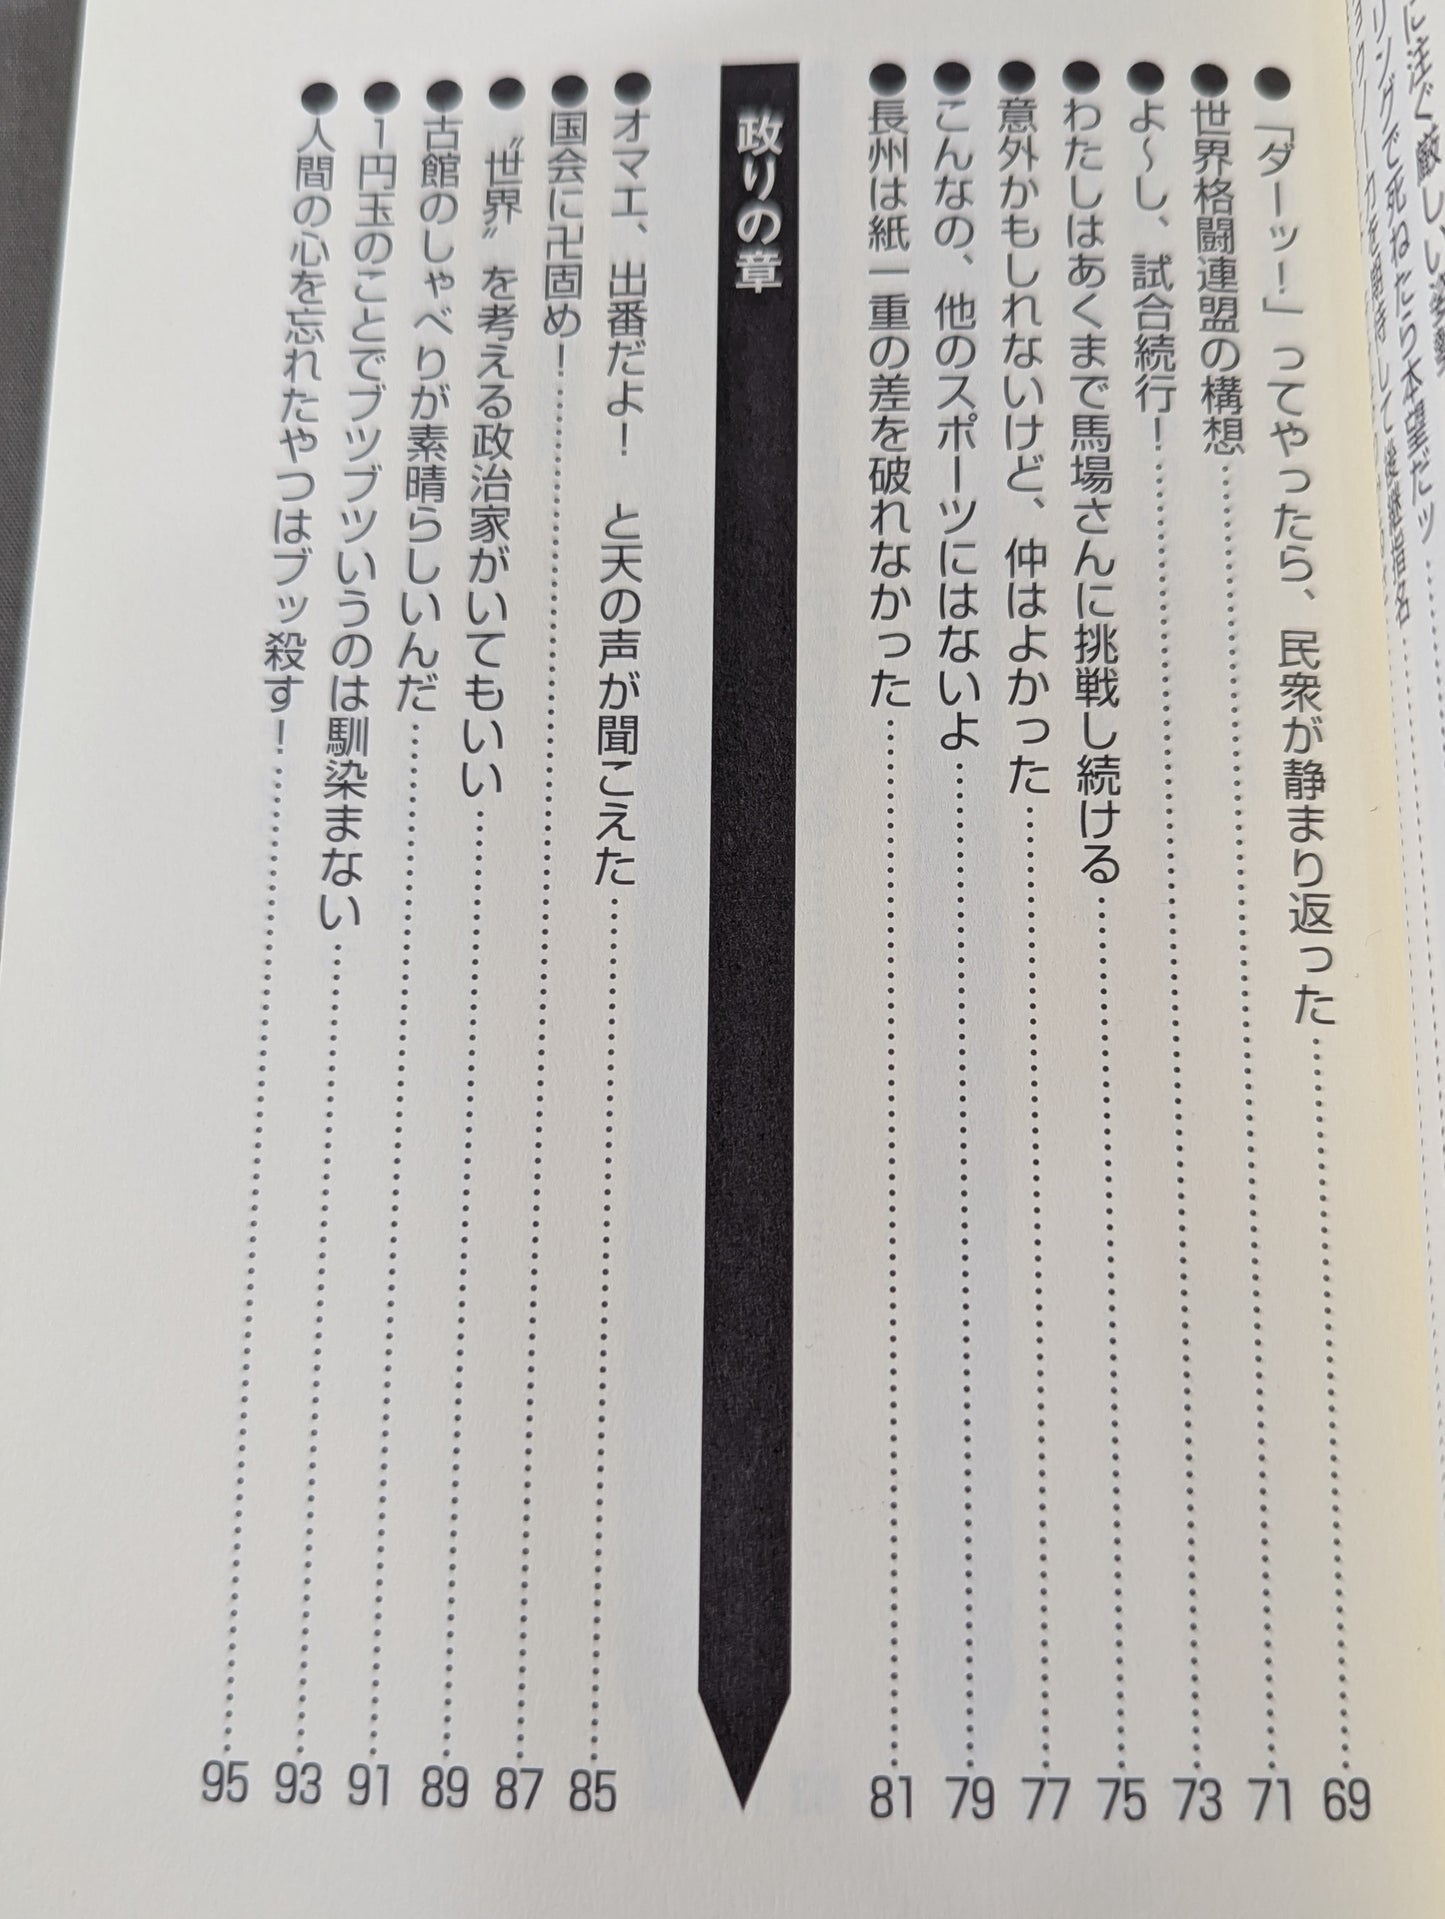 に注ぐ厳しい
リングで死ねたら本望だッ
して後継指名
●「ダーッ！」ってやったら、民衆が静まり返った……69
●世界格闘連盟の構想……71
●よ〜し、試合続行！……73
●わたしはあくまで馬場さんに挑戦し続ける……75
●意外かもしれないけど、仲はよかった……77
●こんなの、他のスポーツにはないよ……79
●長州は紙一重の差を破れなかった……81
政りの章
●オマエ、出番だよ！　と天の声が聞こえた……85
●国会に卍固め！……87
●〝世界〟を考える政治家がいてもいい……89
●古館のしゃべりが素晴らしいんだ……91
●1円玉のことでブツブツいうのは馴染まない……93
●人間の心を忘れたやつはブッ殺す！……95